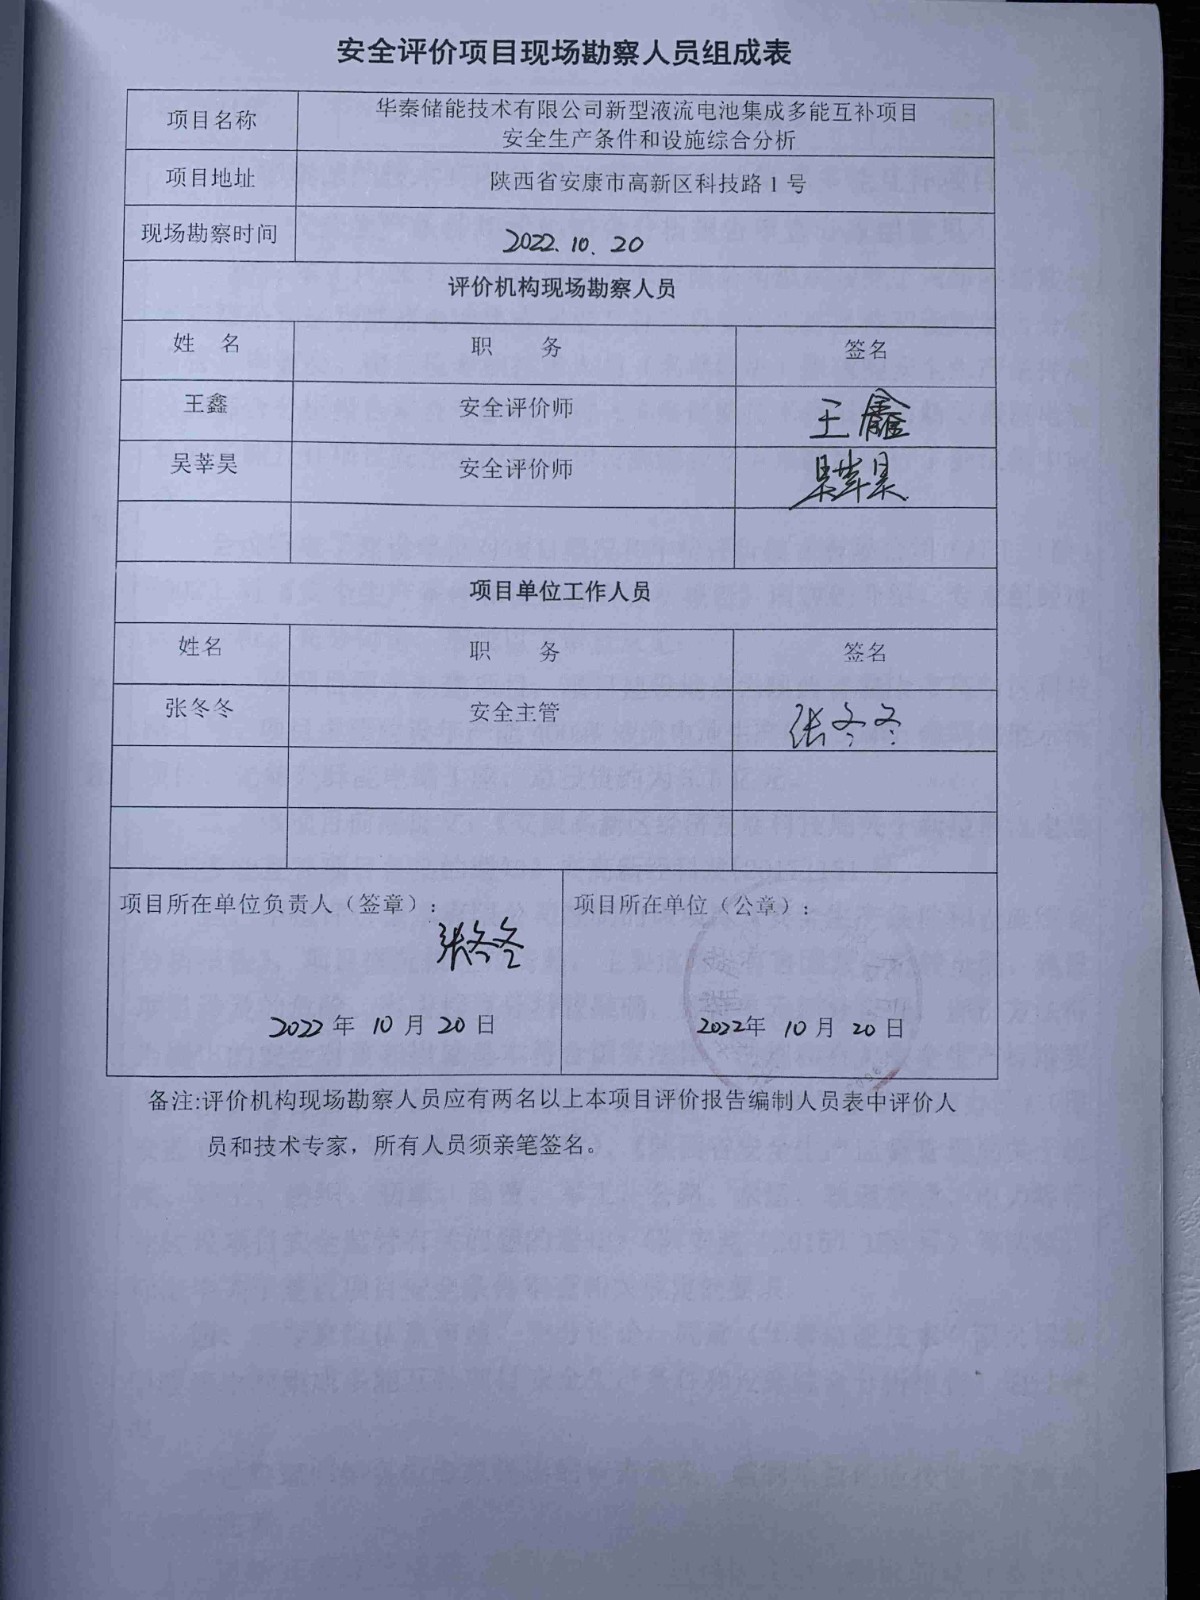 安全评价项目现场勘察人员组成表
项目名称
华秦储能技术有限公司新型液流电池集成多能互补项目
安全生产条件和设施综合分析
项目地址
陕西省安康市高新区科技路1号
现场勘察时间
2022.10.20
评价机构现场勘察人员
姓 名 职 务 签名
王鑫 安全评价师 王鑫
吴莘昊 安全评价师 吴莘昊
项目单位工作人员
姓名 职 务 签名
张冬冬 安全主管 张冬冬
项目所在单位负责人（签章）: 项目所在单位（公章）:
张冬冬
2022年10月20日 2022年10月20日
备注:评价机构现场勘察人员应有两名以上本项目评价报告编制人员表中评价人
员和技术专家，所有人员须亲笔签名。